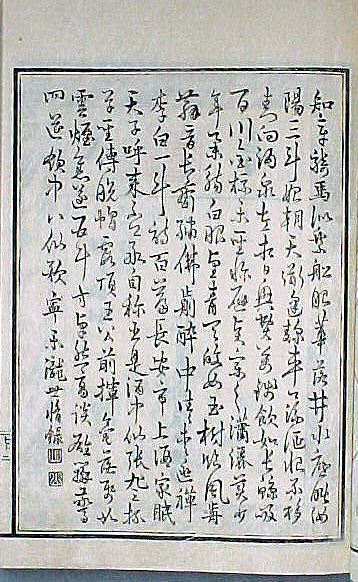 知章騎馬似乘船眼華落井水底眠汝
陽三斗始朝天道逢麴車口流涎恨不移
封向酒泉左相日興費萬錢飲如長鯨吸
百川銜杯樂聖稱避賢宗之瀟灑美少
年舉觴白眼望青天皎如玉樹臨風前
蘇晉長齋繡佛前醉中往往愛逃禪
李白一斗詩百篇長安市上酒家眠
天子呼來不上船自稱臣是酒中仙張旭三杯
草聖傳脫帽露頂王公前揮毫落紙如
雲煙焦遂五斗方卓然高談雄辯驚
四筵飲中八仙歌